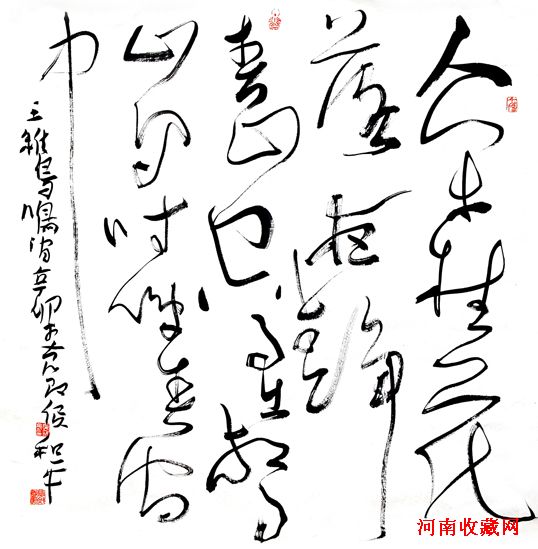 人閒桂花
落夜靜
春山空月出驚
山鳥時鳴春澗
中
王維鳥鳴澗辛卯
河南收藏网